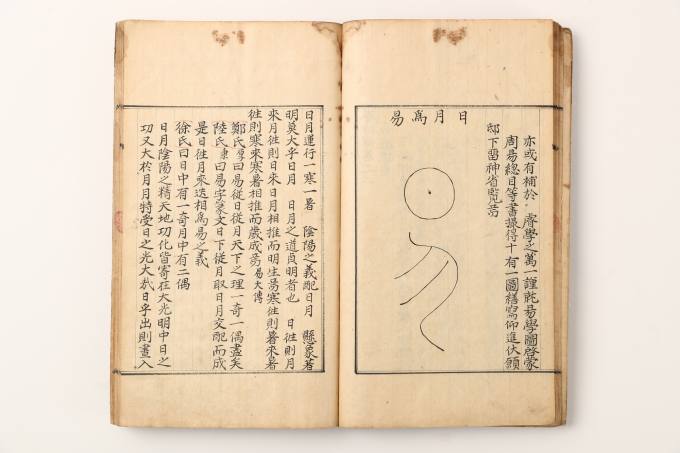 亦或有補於 睿學之萬一謹就易學圖啓蒙
周易總目等書撮得十有一圖繕寫仰進伏願
邸下留神省覽焉
日月爲易
日月運行一寒一暑 陰陽之義配日月 縣象著
明莫大乎日月 日月之道貞明者也 日徃則月
來月徃則日來日月相推而明生焉寒徃則暑來暑
徃則寒來寒暑相推而歲成焉易大傳
鄭氏厚曰易從日從月天下之理一奇一偶盡矣
陸氏秉曰易字篆文日下從月取日月交配而成
是日徃月來迭相爲易之義
徐氏曰日中有一奇月中有二偶
日月陰陽之精天地功化皆寄在大光明中日之
功又大於月月特受日之光大哉日乎出則晝入